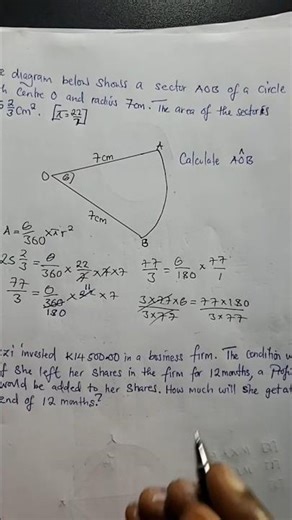 diagram below shows a sector AOB of a circle
Centre O and radius 7cm. The area of the sector is
2/3 cm². [π=22/7]
A
7cm
Calculate AÔB
O θ
7cm
B
A = θ/360 × πr²
25 2/3 = θ/360 × 22/7 × 7 × 7
77/3 = θ/180 × 77/1
77/3 = θ/360 × 22 × 7
11
180
3×77×θ/3×77 = 77×180/3×77
invested K14 500.00 in a business firm. The condition
if she left her shares in the firm for 12 months, a
would be added to her shares. How much will she get at
end of 12 months?